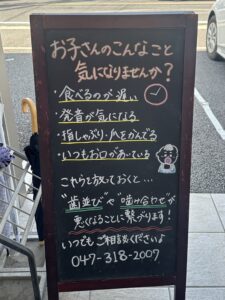 お子さんのこんなこと
気になりませんか？
・食べるのが遅い
・発音が気になる
・指しゃぶり・爪をかんでる
・いつもお口があいている
これらを放っておくと…
"歯並び"や"噛み合わせ"が
悪くなることに繋がります！
いつでもご相談くださいよ
047-318-2007